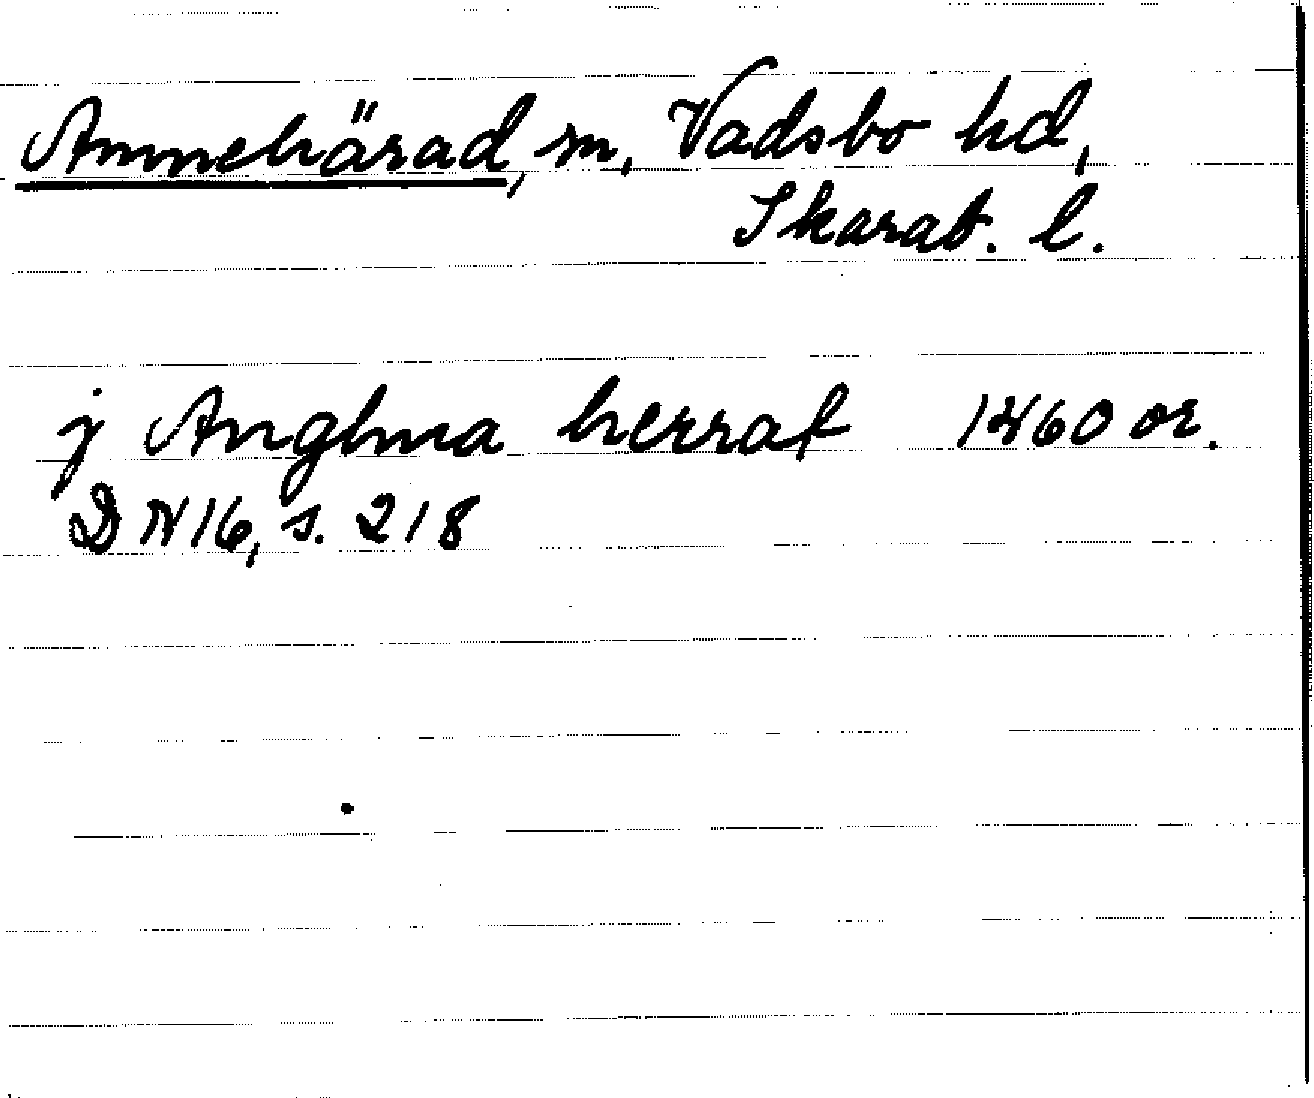 Amnehärad, sn, Vadsbo hd,
Skarab. l.
j Anghna herrat 1460 or.
DN 16, s. 218